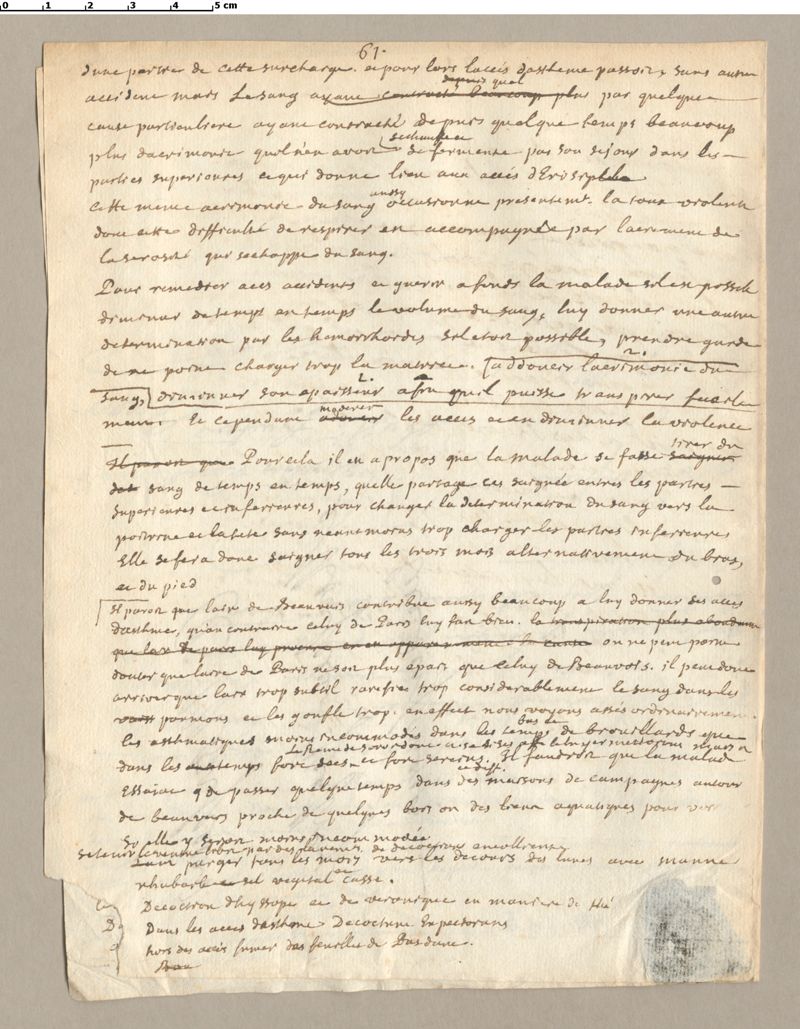 0 1 2 3 4 5 cm
61.
d'une partie de cette surcharge. et pour lors l'accès d'astheme passoit, sans autre
depuis quel
accident mais le sang ayant contracté beaucoup plus par quelque
cause particuliere ayant contracté depuis quelque temps beaucoup
seschauffe et
plus dacrimonie quil n'en avoit se fermente par son sejour dans les
parties superieures ce qui donne lieu aux accès d'Erisypele
aussy
Cette meme acrimonie du sang occasionne presentemt. la toux violente
donc cette difficulté de respirer est accompagnée par lacrement de
la serosité qui sechappe du sang.
Pour remedier aces accidents et guerir a fonds la malade sil est possible
diminuer de temps en temps le volume du sang, luy donner une autre
determination par les hemorrhoides sil etoit possible, prendre garde
de ne point charger trop la matrice. 2. addoucir lacrimonie du
sang, diminuer son epaisseur 2. afin quil puisse transpirer facile
moderer
ment. Et cependant adoucir les accès et en diminuer la violence
tirer du
Il paroit que Pour cela il est apropos que la malade se fasse saigner
sang de temps en temps, quelle partage ces saignée entres les parties
superieures et inferieures, pour changer la determination du sang vers la
poitrine et la tete sans neanmoins trop charger les parties inferieures
Elle se fera donc saigner tous les trois mois alternativement du bras,
et du pied
Il paroit que lair de Beauvais contribue aussy beaucoup a luy donner des accès
dasthme, qu'au contraire celuy de Paris luy fait bien. la transpiration plus abondante
que lair de paris luy procure en est apparemment la cause on ne peut point
douter que lair de Paris ne soit plus epais que celuy de Beauvois. il peut donc
arriver que lair trop subtil rarefie trop considerablement le sang dans les
poumons et les gonfle trop. en effect nous voyons assés ordinairement
bas et
les asthmatiques moins incommodés dans les temps de brouillards que
dans les temps fort secs et fort sereins. Il faudroit que la malade
Essaiat de passer quelque temps dans des maisons de campagnes autour
de beauvais proche de quelques bois ou des lieux aquatiques pour voir
Si elle y seroit moins incommodée
se tenir le ventre libre par des lavemts. de decoctions emollients
purger tous les mois vers les decours des lunes avec manne
rhubarbe et sel vegetal et casse.
Decoction dhyssope et de veronique en maniere de thé
Dans les acces dasthme Decoctum Expectorans
hors des accès fumer des feuilles de Pas dane.